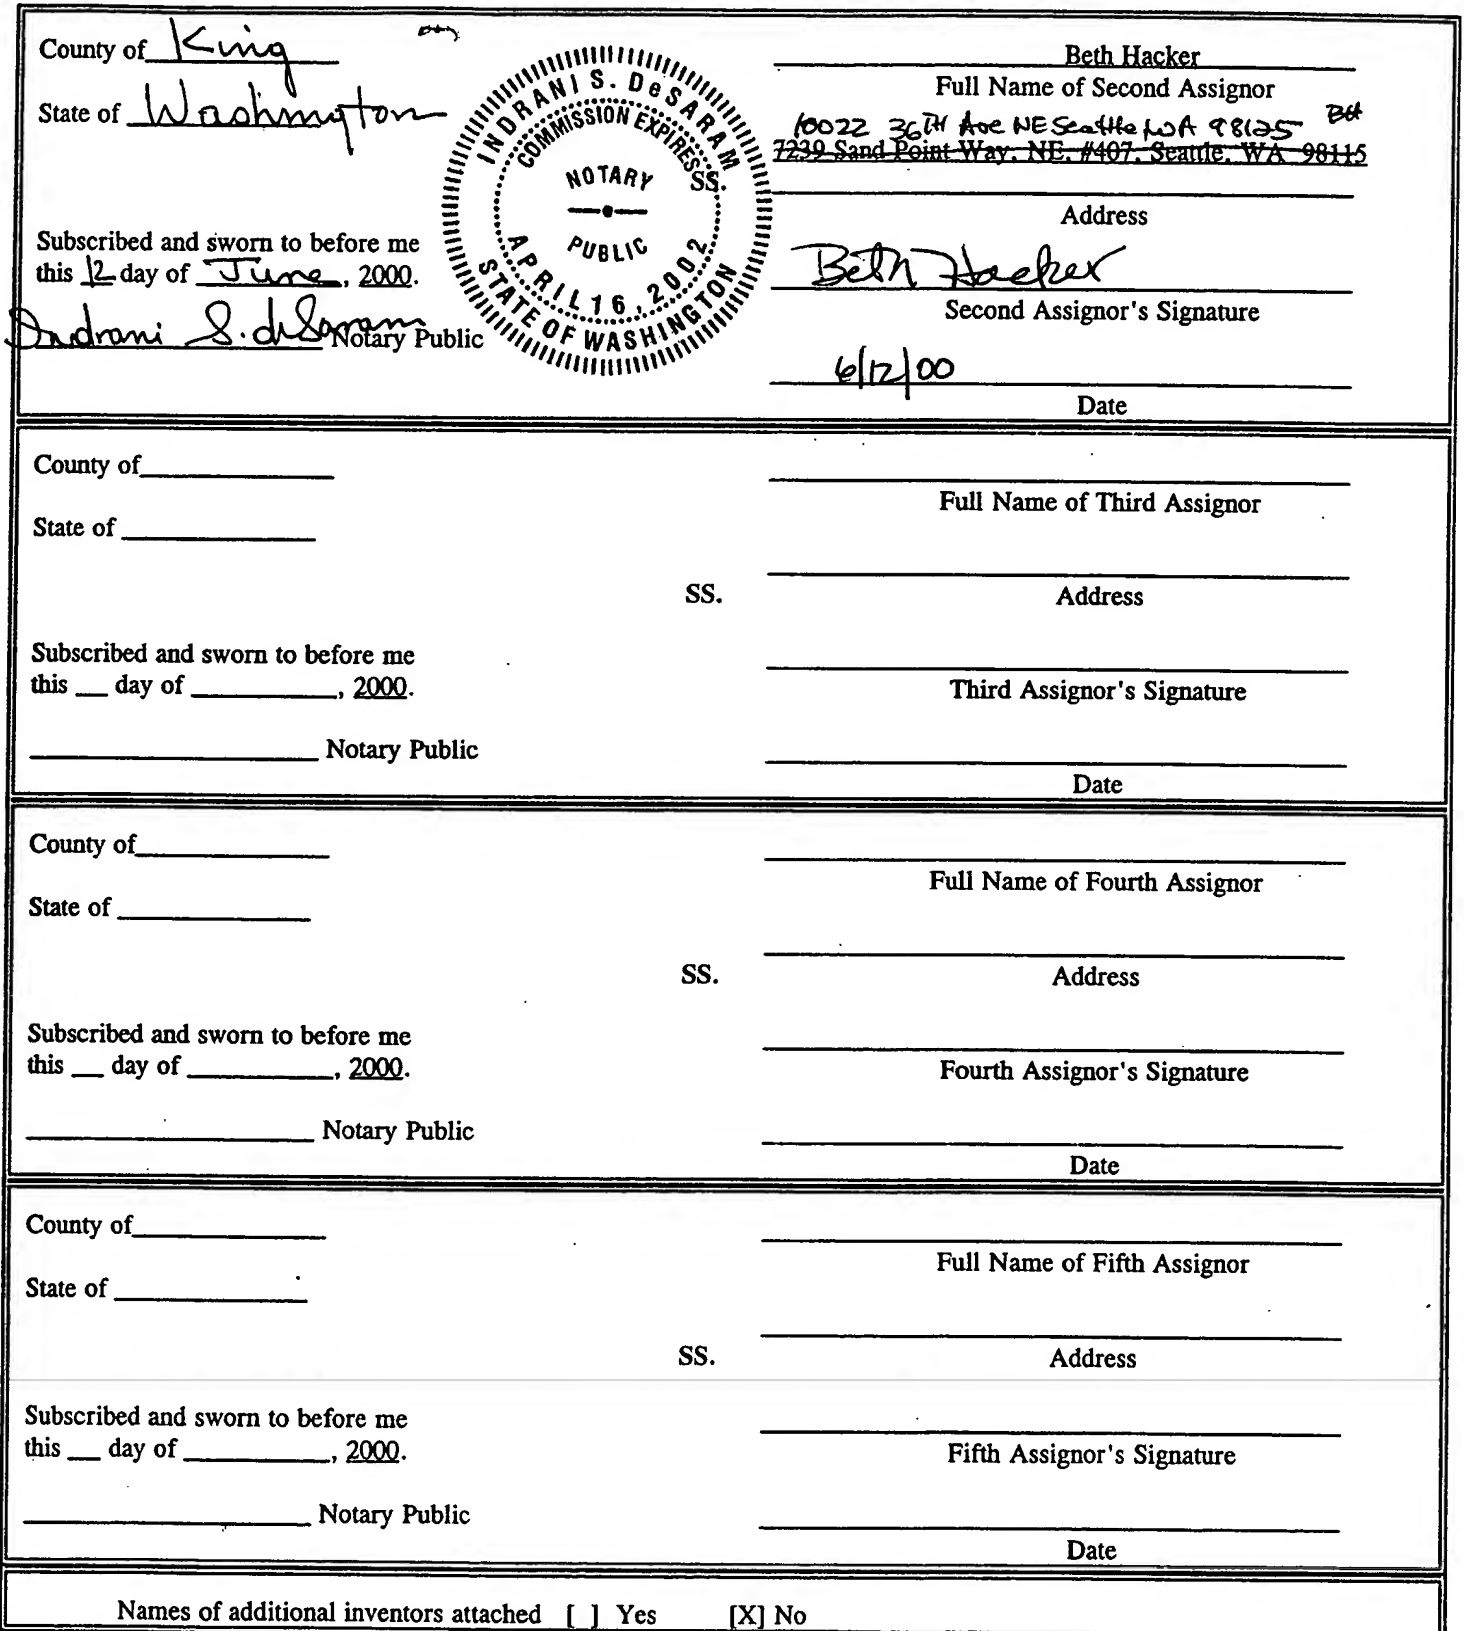 County of King
State of Washington
INDRANI S. DeSARAM
COMMISSION EXPIRES
NOTARY
PUBLIC
APRIL 16, 2002
STATE OF WASHINGTON
SS.
Subscribed and sworn to before me
this 12 day of June, 2000.
Indrani S. deSaram Notary Public
Beth Hacker
Full Name of Second Assignor
10022 36TH Ave NE Seattle WA 98125
7239 Sand Point Way, NE, #407, Seattle, WA 98115
Address
Beth Hacker
Second Assignor's Signature
6/12/00
Date
County of
State of
SS.
Subscribed and sworn to before me
this __ day of __________, 2000.
Notary Public
Full Name of Third Assignor
Address
Third Assignor's Signature
Date
County of
State of
SS.
Subscribed and sworn to before me
this __ day of __________, 2000.
Notary Public
Full Name of Fourth Assignor
Address
Fourth Assignor's Signature
Date
County of
State of
SS.
Subscribed and sworn to before me
this __ day of __________, 2000.
Notary Public
Full Name of Fifth Assignor
Address
Fifth Assignor's Signature
Date
Names of additional inventors attached [ ] Yes [X] No